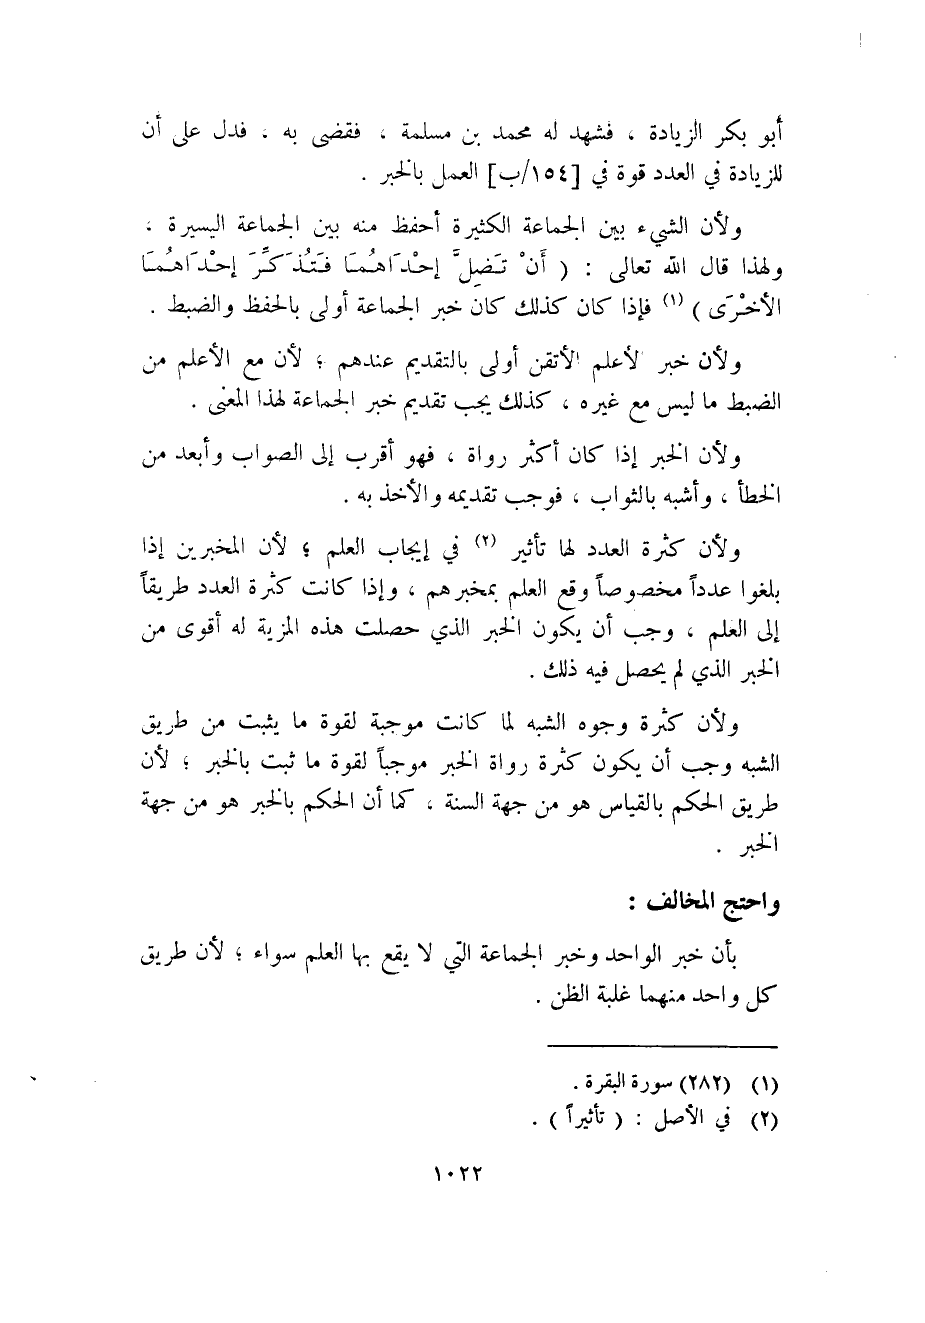 أبو بكر الزيادة ، فشهد له محمد بن مسلمة ، فقضى به . فدل على أن
للزيادة في العدد قوة في [١٥٤/ب] العمل بالخبر .
ولأن الشيء بين الجماعة الكثيرة أحفظ منه بين الجماعة اليسيرة ،
ولهذا قال الله تعالى : ( أَنْ تَضِلَّ إحْدَاهُمَا فَتُذَكِّرَ إحْدَاهُمَا
الأخْرَى ) (١) فإذا كان كذلك كان خبر الجماعة أولى بالحفظ والضبط .
ولأن خبر الأعلم الأتقن أولى بالتقديم عندهم ؛ لأن مع الأعلم من
الضبط ما ليس مع غيره ، كذلك يجب تقديم خبر الجماعة لهذا المعنى .
ولأن الخبر إذا كان أكثر رواة ، فهو أقرب إلى الصواب وأبعد من
الخطأ ، وأشبه بالثواب ، فوجب تقديمه والأخذ به .
ولأن كثرة العدد لها تأثير (٢) في إيجاب العلم ؛ لأن المخبرين إذا
بلغوا عدداً مخصوصاً وقع العلم بمخبرهم ، وإذا كانت كثرة العدد طريقاً
إلى العلم ، وجب أن يكون الخبر الذي حصلت هذه المزية له أقوى من
الخبر الذي لم يحصل فيه ذلك .
ولأن كثرة وجوه الشبه لما كانت موجبة لقوة ما يثبت من طريق
الشبه وجب أن يكون كثرة رواة الخبر موجباً لقوة ما ثبت بالخبر ؛ لأن
طريق الحكم بالقياس هو من جهة السنة ، كما أن الحكم بالخبر هو من جهة
الخبر .
واحتج المخالف :
بأن خبر الواحد وخبر الجماعة التي لا يقع بها العلم سواء ؛ لأن طريق
كل واحد منهما غلبة الظن .
(١) (٢٨٢) سورة البقرة .
(٢) في الأصل : ( تأثيراً ) .
١٠٢٢